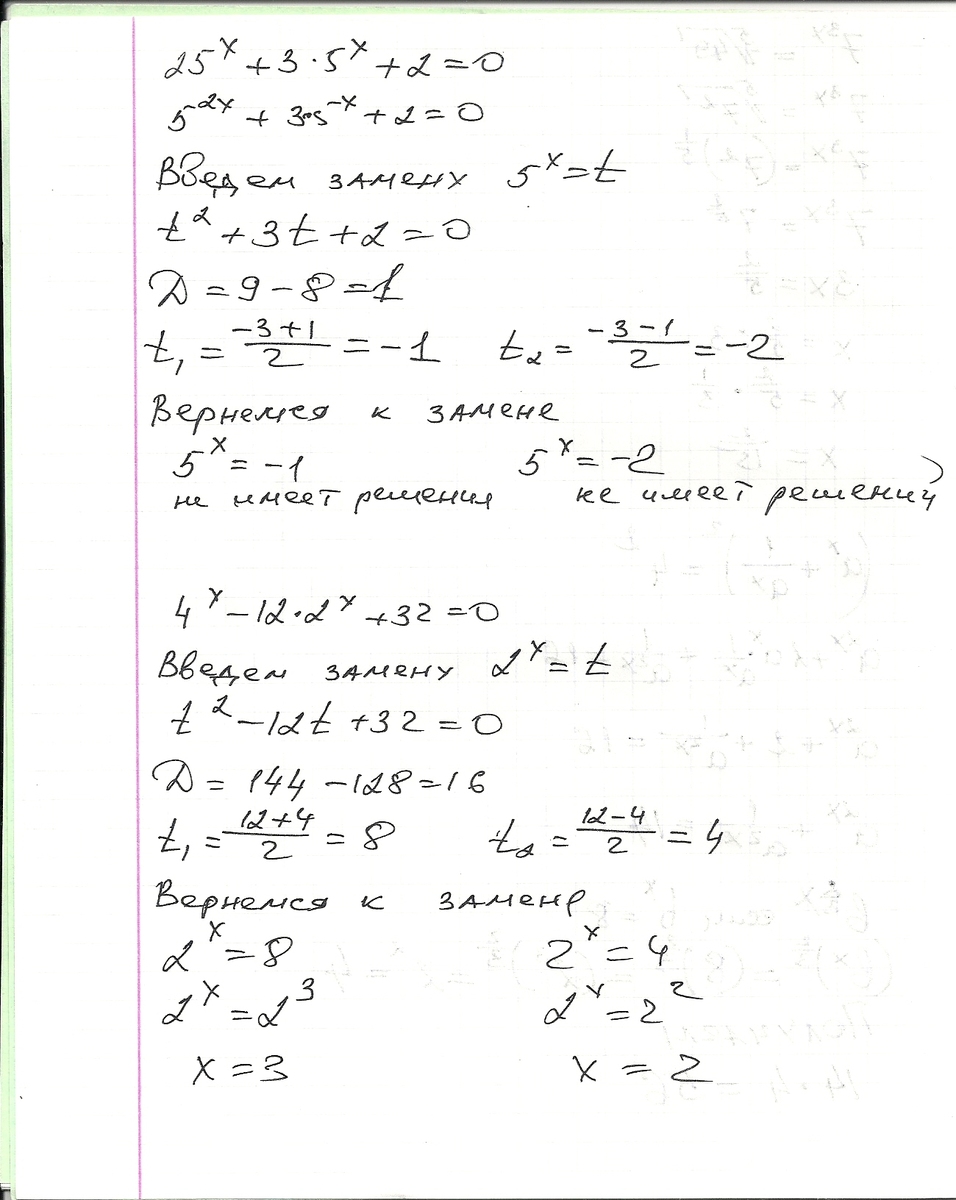 25^x + 3 · 5^x + 2 = 0
5^2x + 3·5^-x + 2 = 0
Введем замену 5^x = t
t^2 + 3t + 2 = 0
D = 9 - 8 = 1
t₁ = (-3+1)/2 = -1    t₂ = (-3-1)/2 = -2
Вернемся к замене
5^x = -1    5^x = -2
не имеет решения    не имеет решений
4^x - 12·2^x + 32 = 0
Введем замену 2^x = t
t^2 - 12t + 32 = 0
D = 144 - 128 = 16
t₁ = (12+4)/2 = 8    t₂ = (12-4)/2 = 4
Вернемся к замене
2^x = 8    2^x = 4
2^x = 2^3    2^x = 2^2
x = 3    x = 2